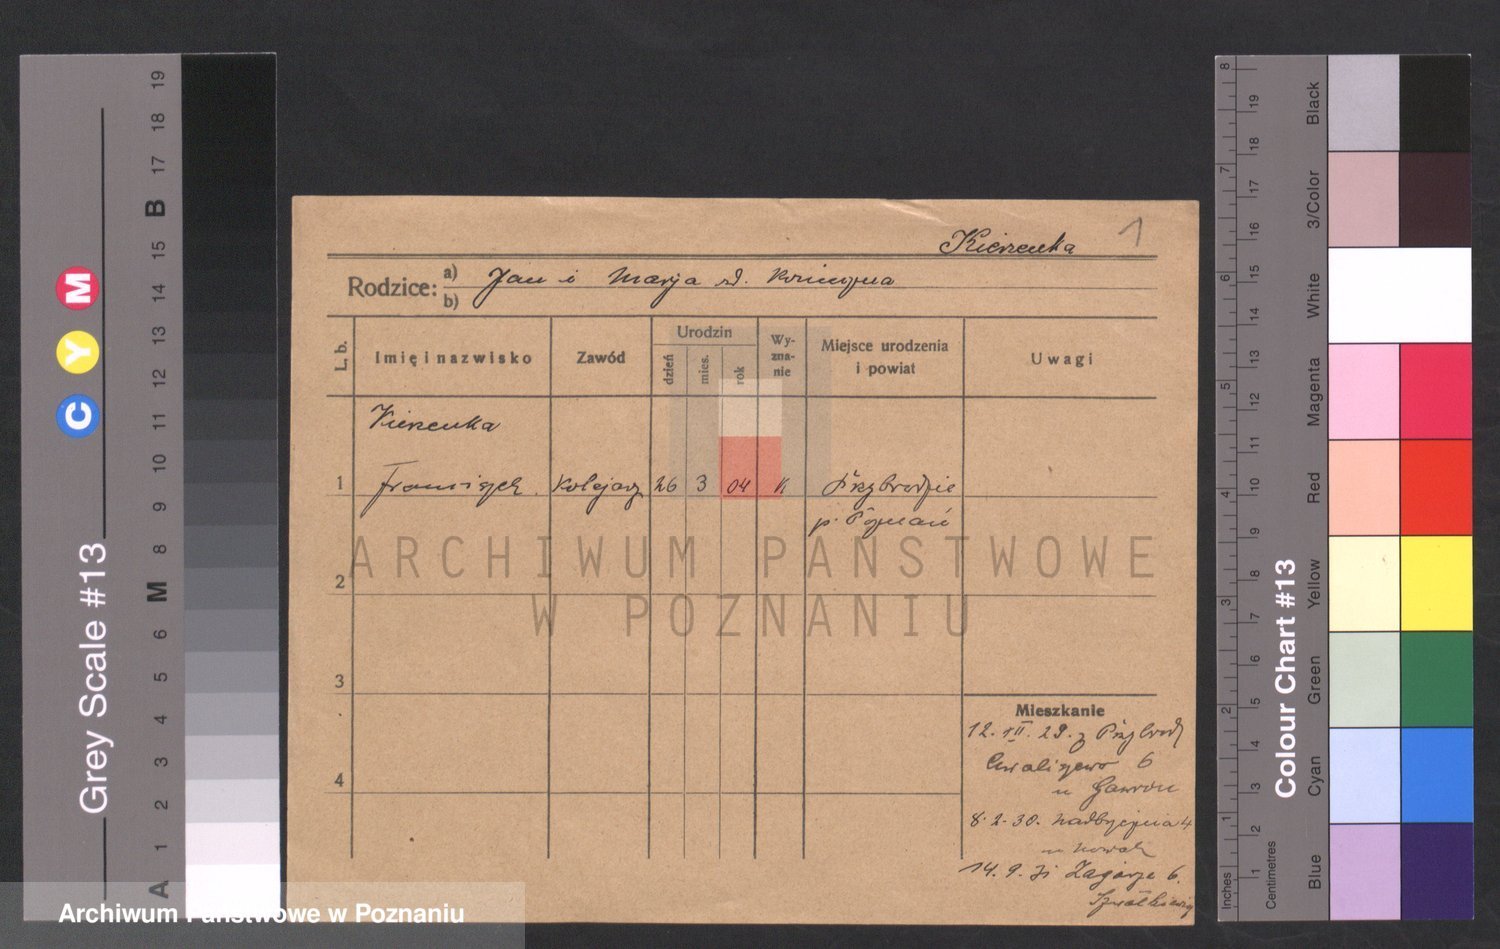 Kierzenka 1
Rodzice: a) Jan i Marja
b)
L. b. Imię i nazwisko Zawód Urodzin dzień mies. rok Wy-zna-nie Miejsce urodzenia i powiat Uwagi
Kierzenka
1 Franciszek. Kolejarz 26 3 04 k Przybrodzie
p. Poznań
ARCHIWUM PAŃSTWOWE
2
W POZNANIU
3
Mieszkanie
12. 29. z Przybrod
Chwaliszewo 6
u Gawron
4
8.2.30. Nadbrzeżna 4
u Nowak
14. 9. 31 Zagórze 6.
Grey Scale #13
C Y M
A 1 2 3 4 5 6 M 8 9 10 11 12 13 14 15 B 17 18 19
Colour Chart #13
Blue Cyan Green Yellow Red Magenta White 3/Color Black
Inches 1 2 3 4 5 6 7 8
Centimetres 1 2 3 4 5 6 7 8 9 10 11 12 13 14 15 16 17 18 19
Archiwum Państwowe w Poznaniu